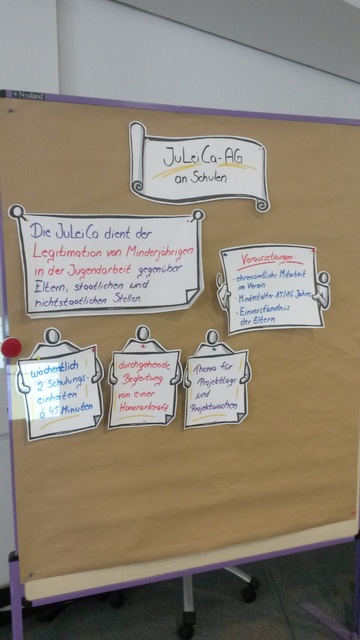 Neuland
JuLeiCa-AG
an Schulen
Die JuLeiCa dient der
Legitimation von Minderjährigen
in der Jugendarbeit gegenüber
Eltern, staatlichen und
nichtstaatlichen Stellen.
Voraussetzungen:
- ehrenamtliche Mitarbeit
im Verein
- Mindestalter 15/16 Jahre
- Einverständnis
der Eltern
wöchentlich
2 Schulungs-
einheiten
á 45 Minuten
durchgehende
Begleitung
von einer
Honorarkraft
Thema für
Projekttage
und
Projektwochen